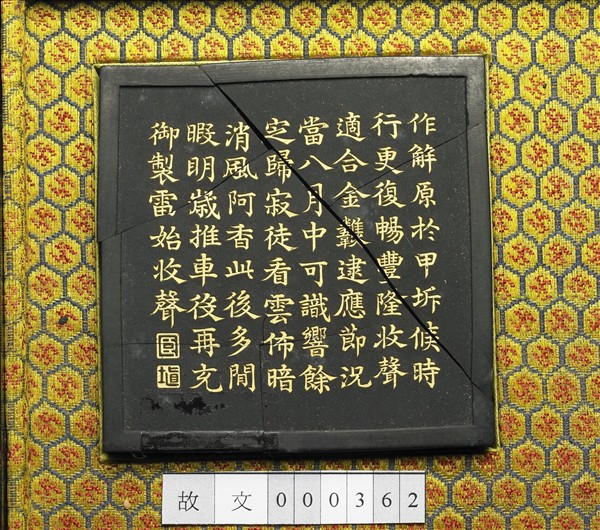 作解原於甲坼候時
行更復暢豐隆收聲
適合金逮應節況
當八月中可識響餘
定歸寂徒看雲佈暗
消風阿香此後多閒
暇明歲推車役再充
御製雷始收聲
故文000362